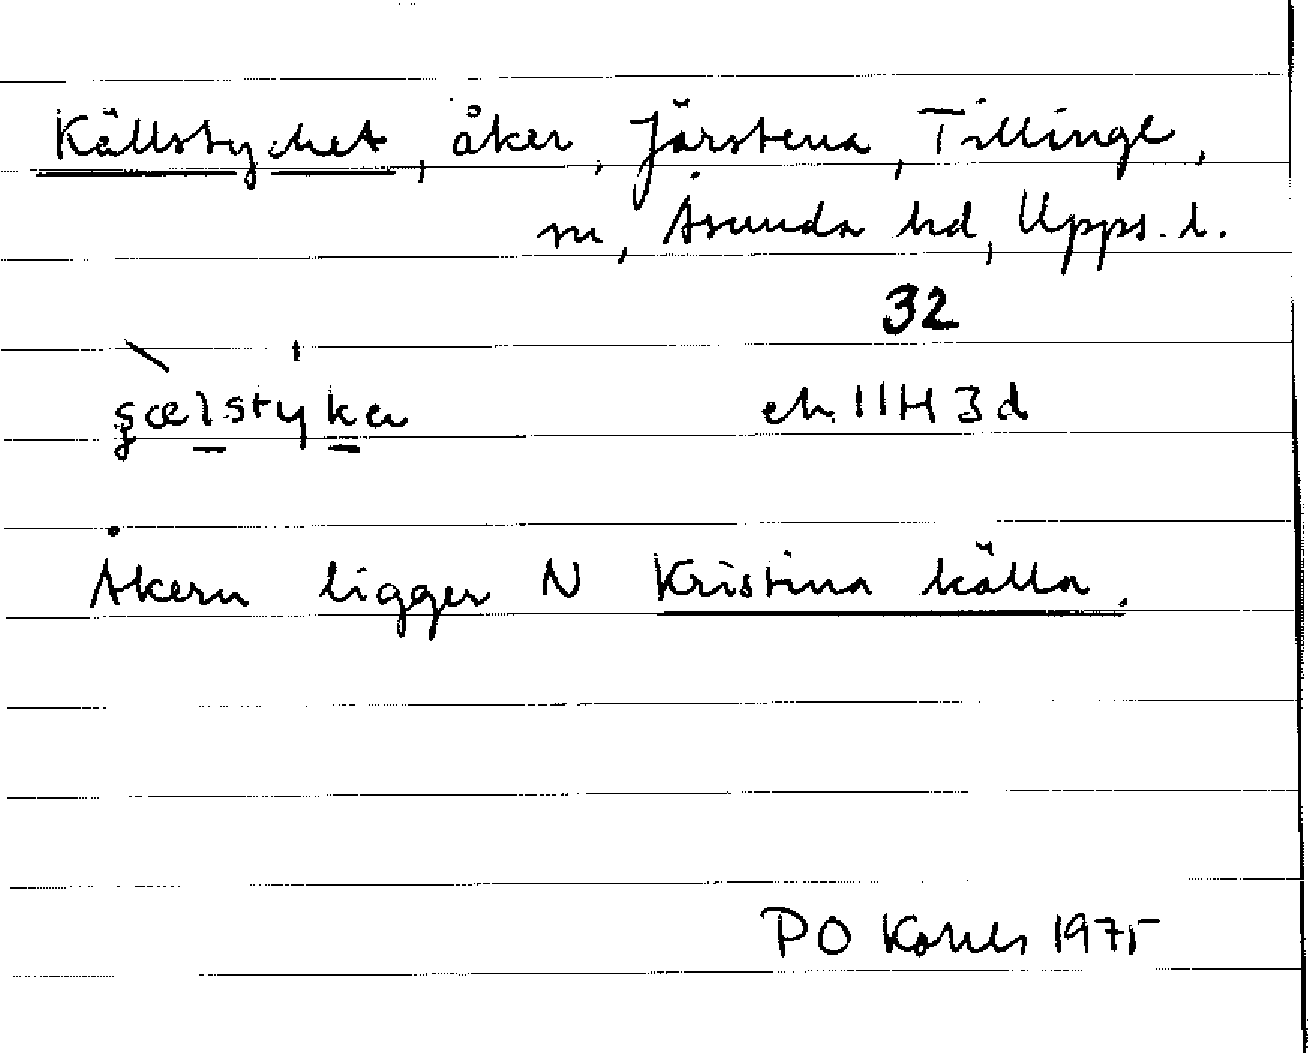 Källstycket, åker, Järstena, Tillinge,
sn, Åsunda hd, Upps. l.
32
ek. 11H 3d
Åkern ligger N Kristina källa.
PO 1975